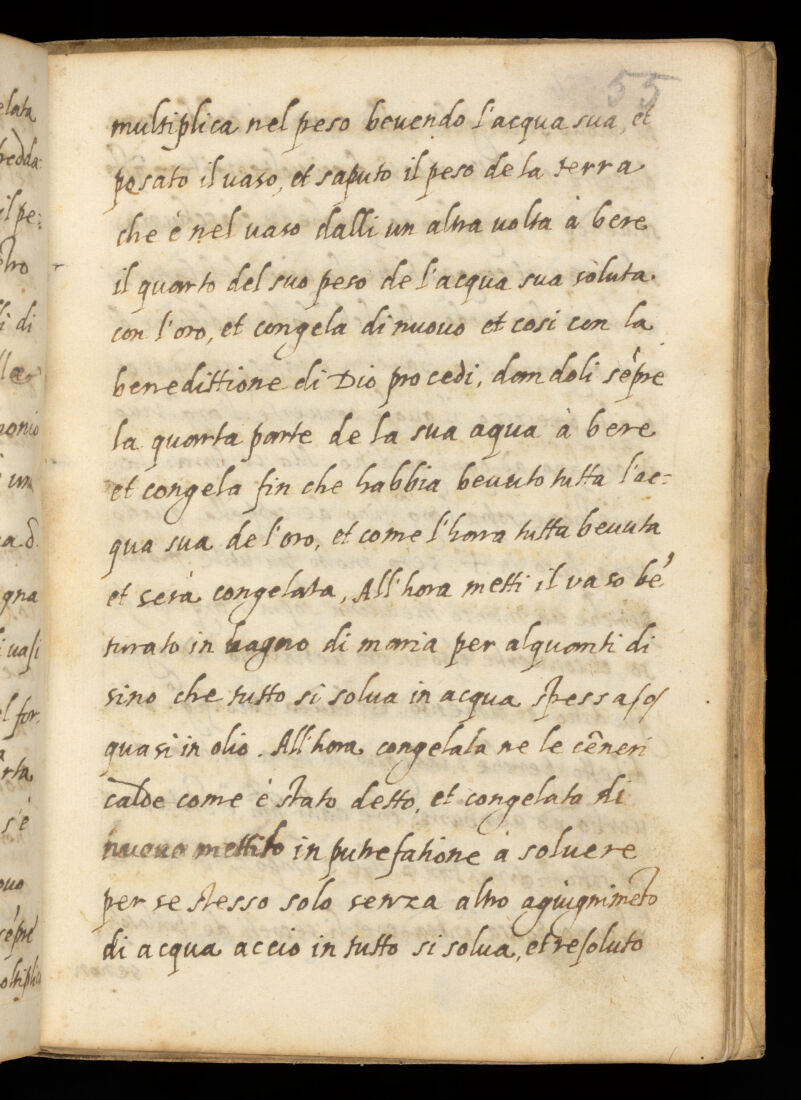 elata
redda:
il pe:
tro
li di
lla
monio
un
a d.
gna
i vasi
l for.
rta
s'è
ovo
sẽpre
oltiplica
55
multiplica nel peso beuendo l'acqua sua, et
posato il uaso, et saputo il peso de la terra
che è nel uaso dalli un altra uolta à bere
il quarto del suo peso de l'acqua sua soluta
con l'oro, et congela di nuouo et cosi con la
benedittione di Dio procedi, dandoli sẽpre
la quarta parte de la sua aqua à bere
et congela fin che habbia beuuto tutta l'ac=
qua sua de l'oro, et come l'hara tutta beuuta
et serà congelata, All'hora metti il uaso bẽ
turato in bagno di maria per alquanti di
sino che tutto si solua in acqua spessa
quasi in olio. All'hora congelala ne le cẽneri
calde come è stato detto, et congelato di
nuouo mettilo in putrefatione à soluere
per se stesso solo senza altro agiugnimẽto
di acqua acciò in tutto si solua, et resoluto